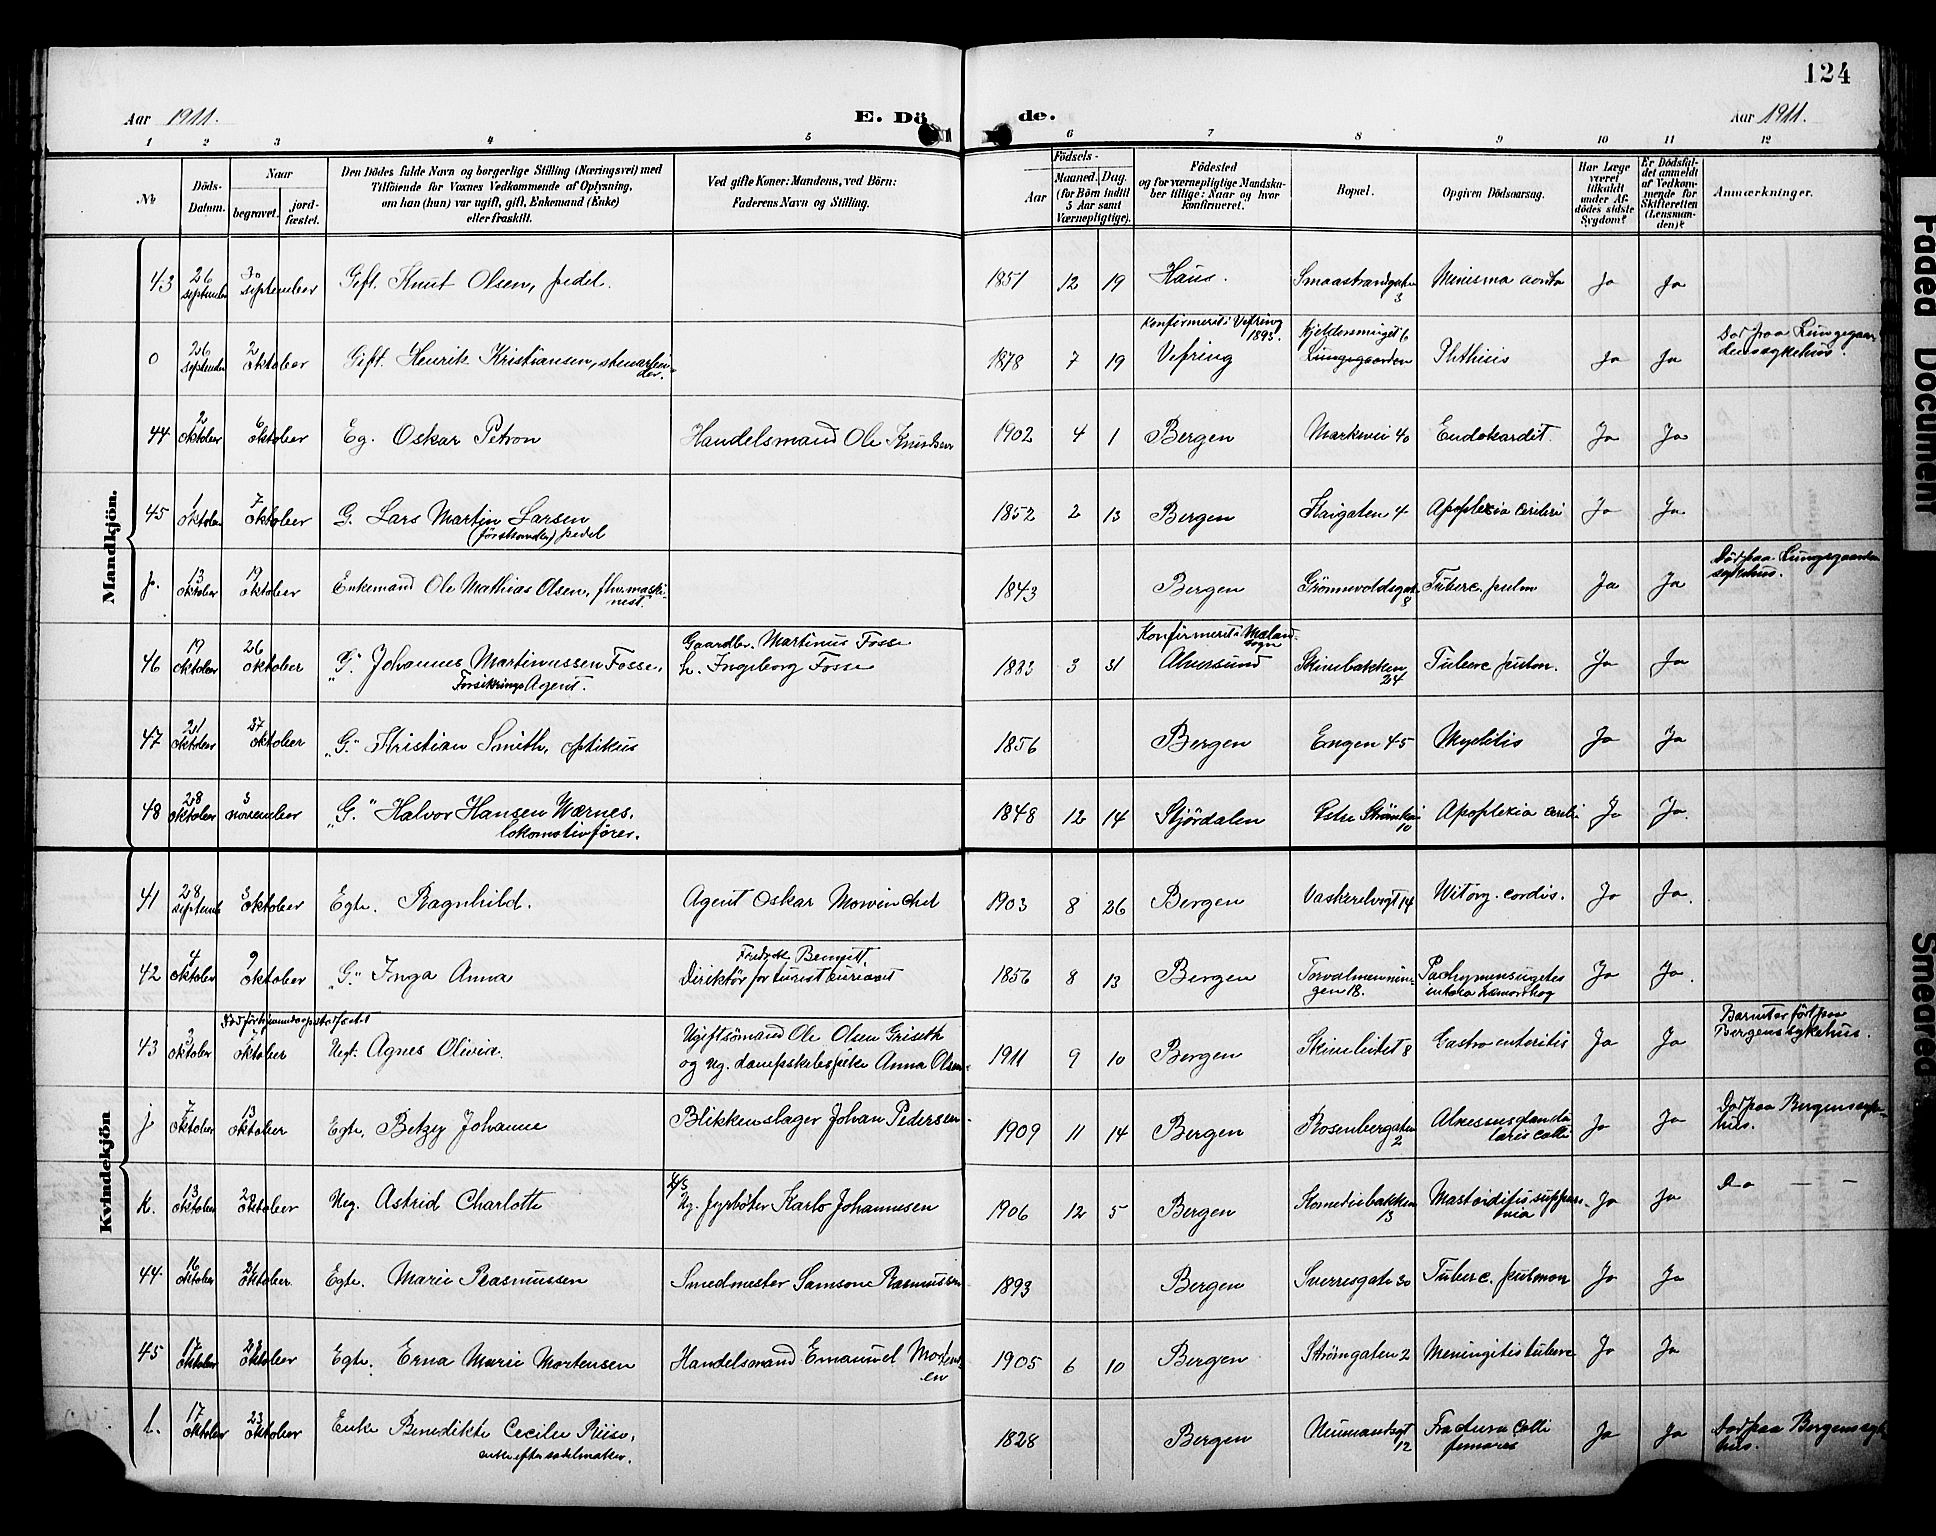 124
Aar 1911.
E. Dö de.
Aar 1911.
1 2 3 4 5 6 7 8 9 10 11 12
No
Döds-Datum.
Naar
begravet.
jord-fæstet.
Den Dödes fulde Navn og borgerlige Stilling (Næringsvei) med
Tilföiende for Voxnes Vedkommende af Oplysning,
om han (hun) var ugift, gift, Enkemand (Enke)
eller fraskilt.
Ved gifte Koner: Mandens, ved Börn:
Faderens Navn og Stilling.
Födsels-
Aar
Maaned. Dag.
(for Börn indtil
5 Aar samt
Værnepligtige).
Födested
og for værnepligtige Mandska-
ber tillige: Naar og hvor
konfirmeret.
Bopæl.
Opgiven Dödsaarsag.
Har Læge
været
tilkaldt
under Af-
dödes sidste
Sygdom?
Er Dödsfal-
det anmeldt
af Vedkom-
mende for
Skifteretten
(Lensman-
den)?
Anmærkninger.
Mandkjön.
43 26 september 30 september Gift. Knut Olsen, pedel. 1851 12 19 Haus. Smaastrandgaten 3 Ja Ja
0 26 september 2 oktober Gift. Henrik Kristiansen, stenarbeider. 1878 7 19 Konfirmert i Vefring 1893. Vefring Lungegaarden Phthisis Ja Ja Död paa Lungegaardens sykehus.
44 2 oktober 6 oktober Eg. Oskar Petron Handelsmand Ole Knudsen 1902 4 1 Bergen Markevei 40 Endokardit. Ja Ja
45 1 oktober 7 oktober G. Lars Martin Larsen pedel 1852 2 13 Bergen Kaigaten 4 Apoplexia cerebri Ja Ja
p. 13 oktober 19 oktober Enkemand Ole Mathias Olsen, 1843 Bergen 8 Tuberc. pulm Ja Ja Död paa Lungegaardens sykehus.
46 19 oktober 26 oktober "G." Johannes Martinussen Fosse, Forsikrings Agent. Gaardbr. Martinus Fosse h. Ingeborg Fosse 1883 3 31 Konfirmert i Meland sogn Alversund Skivebakken 24 Tuberc pulm. Ja Ja
47 21 oktober 27 oktober "G." Kristian Smith, optikus 1856 Bergen Engen 45 Myelitis Ja Ja
48 28 oktober 3 november "G." Halvor Hansen Værnes, lokomotivförer. 1848 12 14 Stjördalen 10 Apoplexia cerebri Ja Ja.
Kvindekjön
41 28 septemb 3 oktober Egte. Ragnhild. Agent Oskar Mowinckel 1903 8 26 Bergen Vaskerelvgt 14 Vit. org. cordis. Ja Ja.
42 4 oktober 9 oktober "G." Inga Anna Fredrik Bennett. Direktör for turistbureaut 1856 8 13 Bergen Torvalmenningen 18. Ja Ja.
43 3 oktober oktober Uegt. Agnes Olivia. Ugift sömand Ole Olsen Griseth og ug. dampskibspike Anna Olsen. 1911 9 10 Bergen 8 Gastro enteritis Ja Ja Barnet er fört paa Bergens sykehus.
j 7 oktober 13 oktober Egte, Betzy Johanne Blikkenslager Johan Pedersen 1909 11 14 Bergen Rosenbergaten 2 Ja Ja Död paa Bergens sykehus.
k. 13 oktober 20 oktober Ueg. Astrid Charlotte Ug. fyrböter Karlo Johannesen 1906 12 5 Bergen Komediebakken 13 Mastoiditis Ja Ja Do — —
44 16 oktober 21 oktober. Egte. Marie Rasmussen Smedmester Samson Rasmussen 1893 Bergen Sverresgate 30 Tuberc. pulmon Ja Ja
45 17 oktober 23 oktober Egte. Erna Marie Mortensen Handelsmand Emanuel Mortensen 1905 6 10 Bergen Strömgaten 2 Meningitis tuberc Ja Ja
l. 17 oktober 23 oktober Enke Benedikte Cecilie Riise, enke efter sadelmaker. 1828 Bergen Neumandsgt 12 Fractura Colli femoris Ja Ja Död paa Bergens sykehus.
Faded Document
Smeared